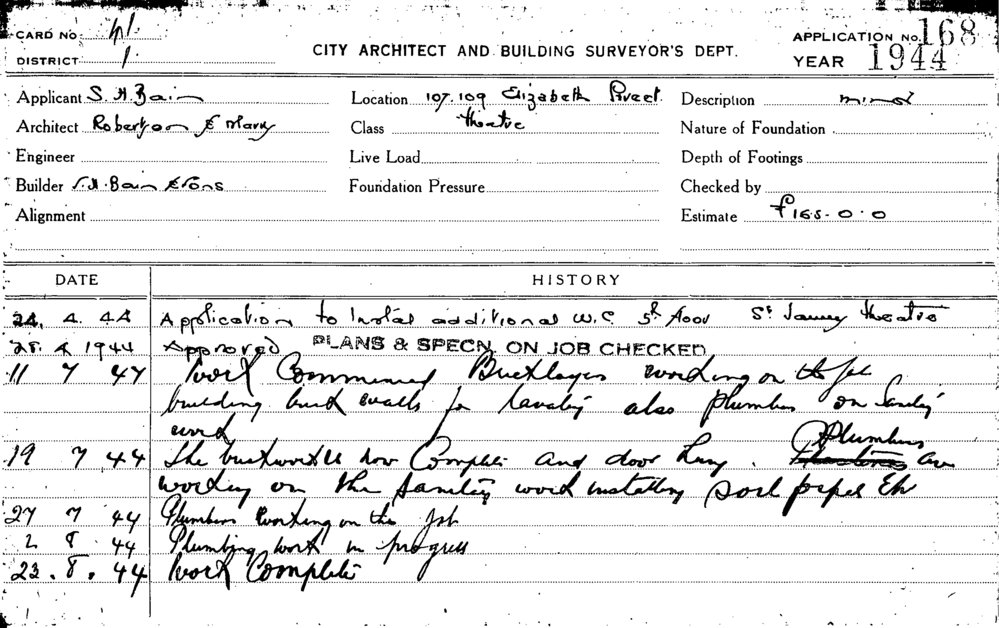 CARD No. 41
DISTRICT 1
CITY ARCHITECT AND BUILDING SURVEYOR'S DEPT.
APPLICATION No. 168
YEAR 1944
Applicant S. H. Bain
Location 107.109 Elizabeth Street.
Description minor
Architect Robertson & Marks
Class theatre
Nature of Foundation
Engineer
Live Load
Depth of Footings
Builder S. H. Bain & Sons
Foundation Pressure
Checked by
Alignment
Estimate £165.0.0
DATE HISTORY
24. 4. 44 Application to Instal additional W.C. 5th floor St James theatre
28. 4 1944 Approved PLANS & SPECN. ON JOB CHECKED
11 7 44 Work Commenced Bricklayers working on the Job
building brick walls for lavatory also plumbers on Sanitary
work
19 7 44 The brickwork is now Complete and door hung. Plumbers are
working on the sanitary work installing soil pipes Etc
27 7 44 Plumbers working on the Job
2 8 44 Plumbing work in progress
23. 8. 44 Work Complete